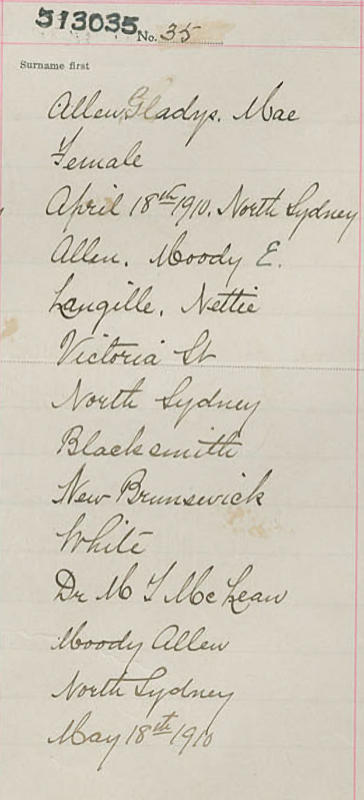 513035 No. 35
Surname first
Allen Gladys. Mae
Female
April 18th 1910. North Sydney
Allen. Moody E.
Langille. Nettie
Victoria St
North Sydney
Blacksmith
New Brunswick
White
Dr M T McLean
Moody Allen
North Sydney
May 18th 1910